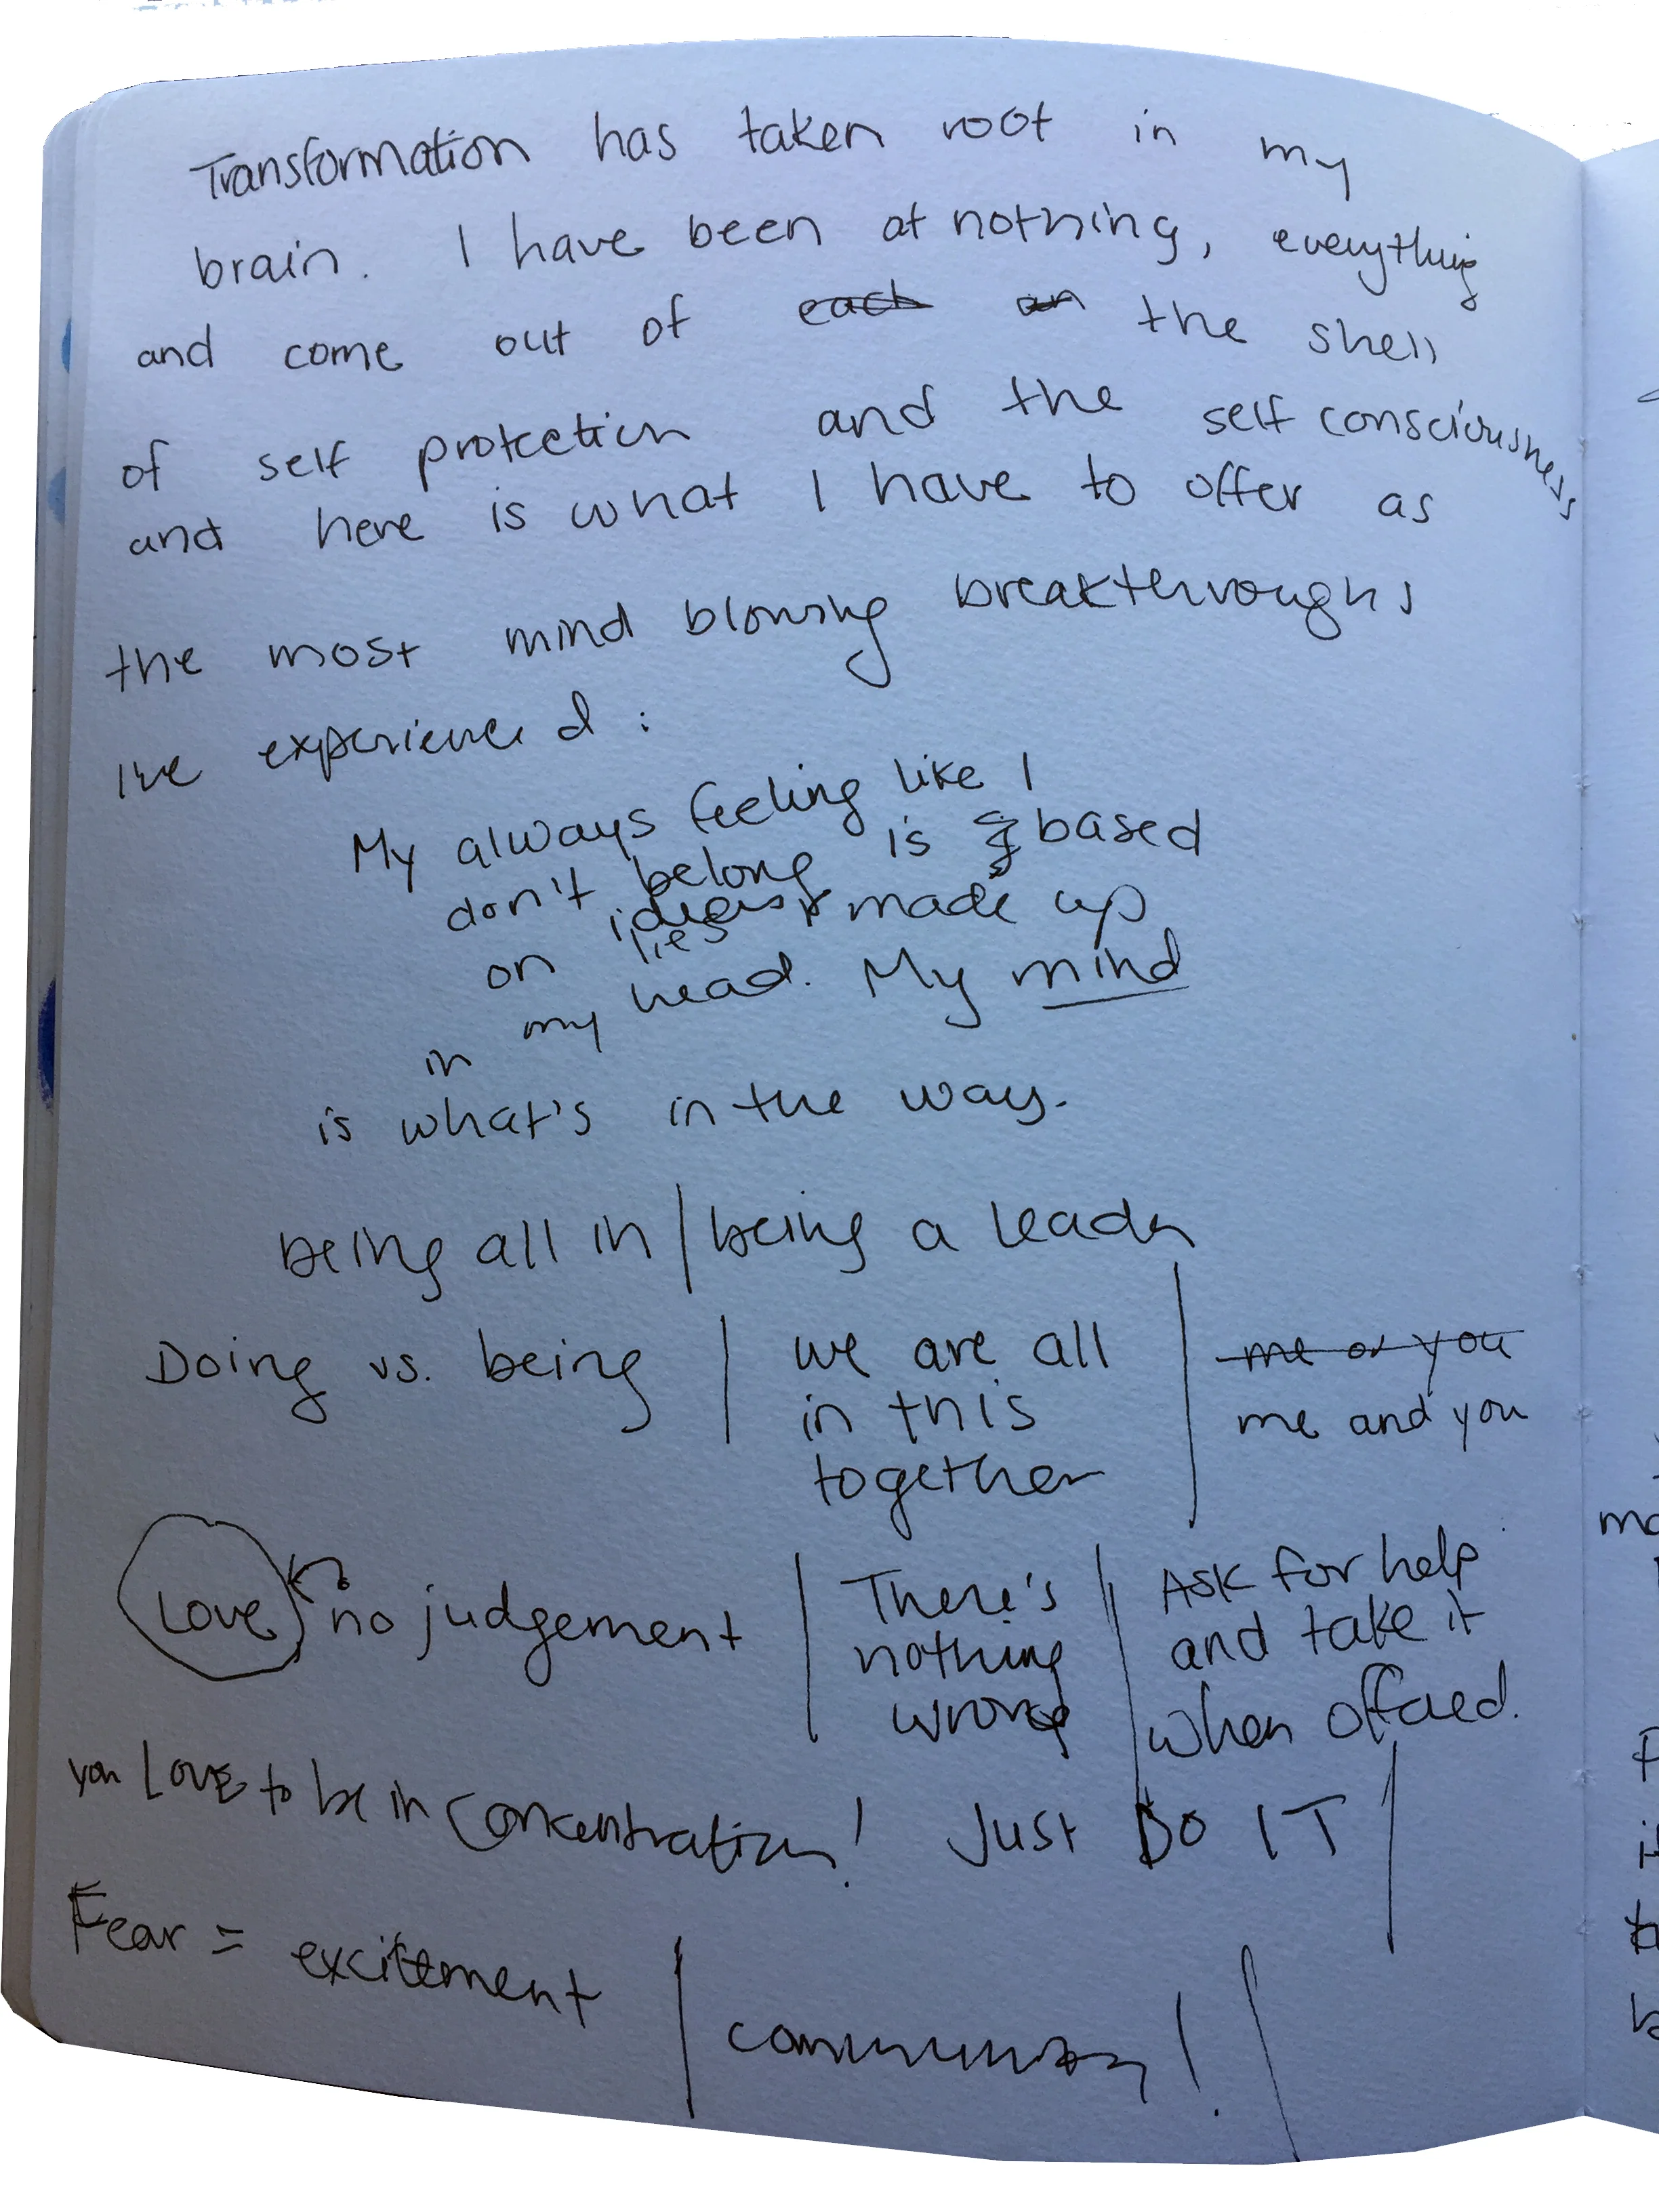 Transformation has taken root in my
brain. I have been at nothing, everything
and come out of each an the shell
of self protection and the self consciousness
and here is what I have to offer as
the most mind blowing breakthroughs
I've experienced :
My always feeling like I
don't belong is based
on ideas lies made up
in my head. My mind
is what's in the way.
Being all in | being a leader
Doing vs. being | we are all
in this
together
me or you
me and you
Love no judgement
There's
nothing
wrong
Ask for help
and take it
when offered.
you LOVE to be in concentration! Just DO IT
Fear = excitement
community!